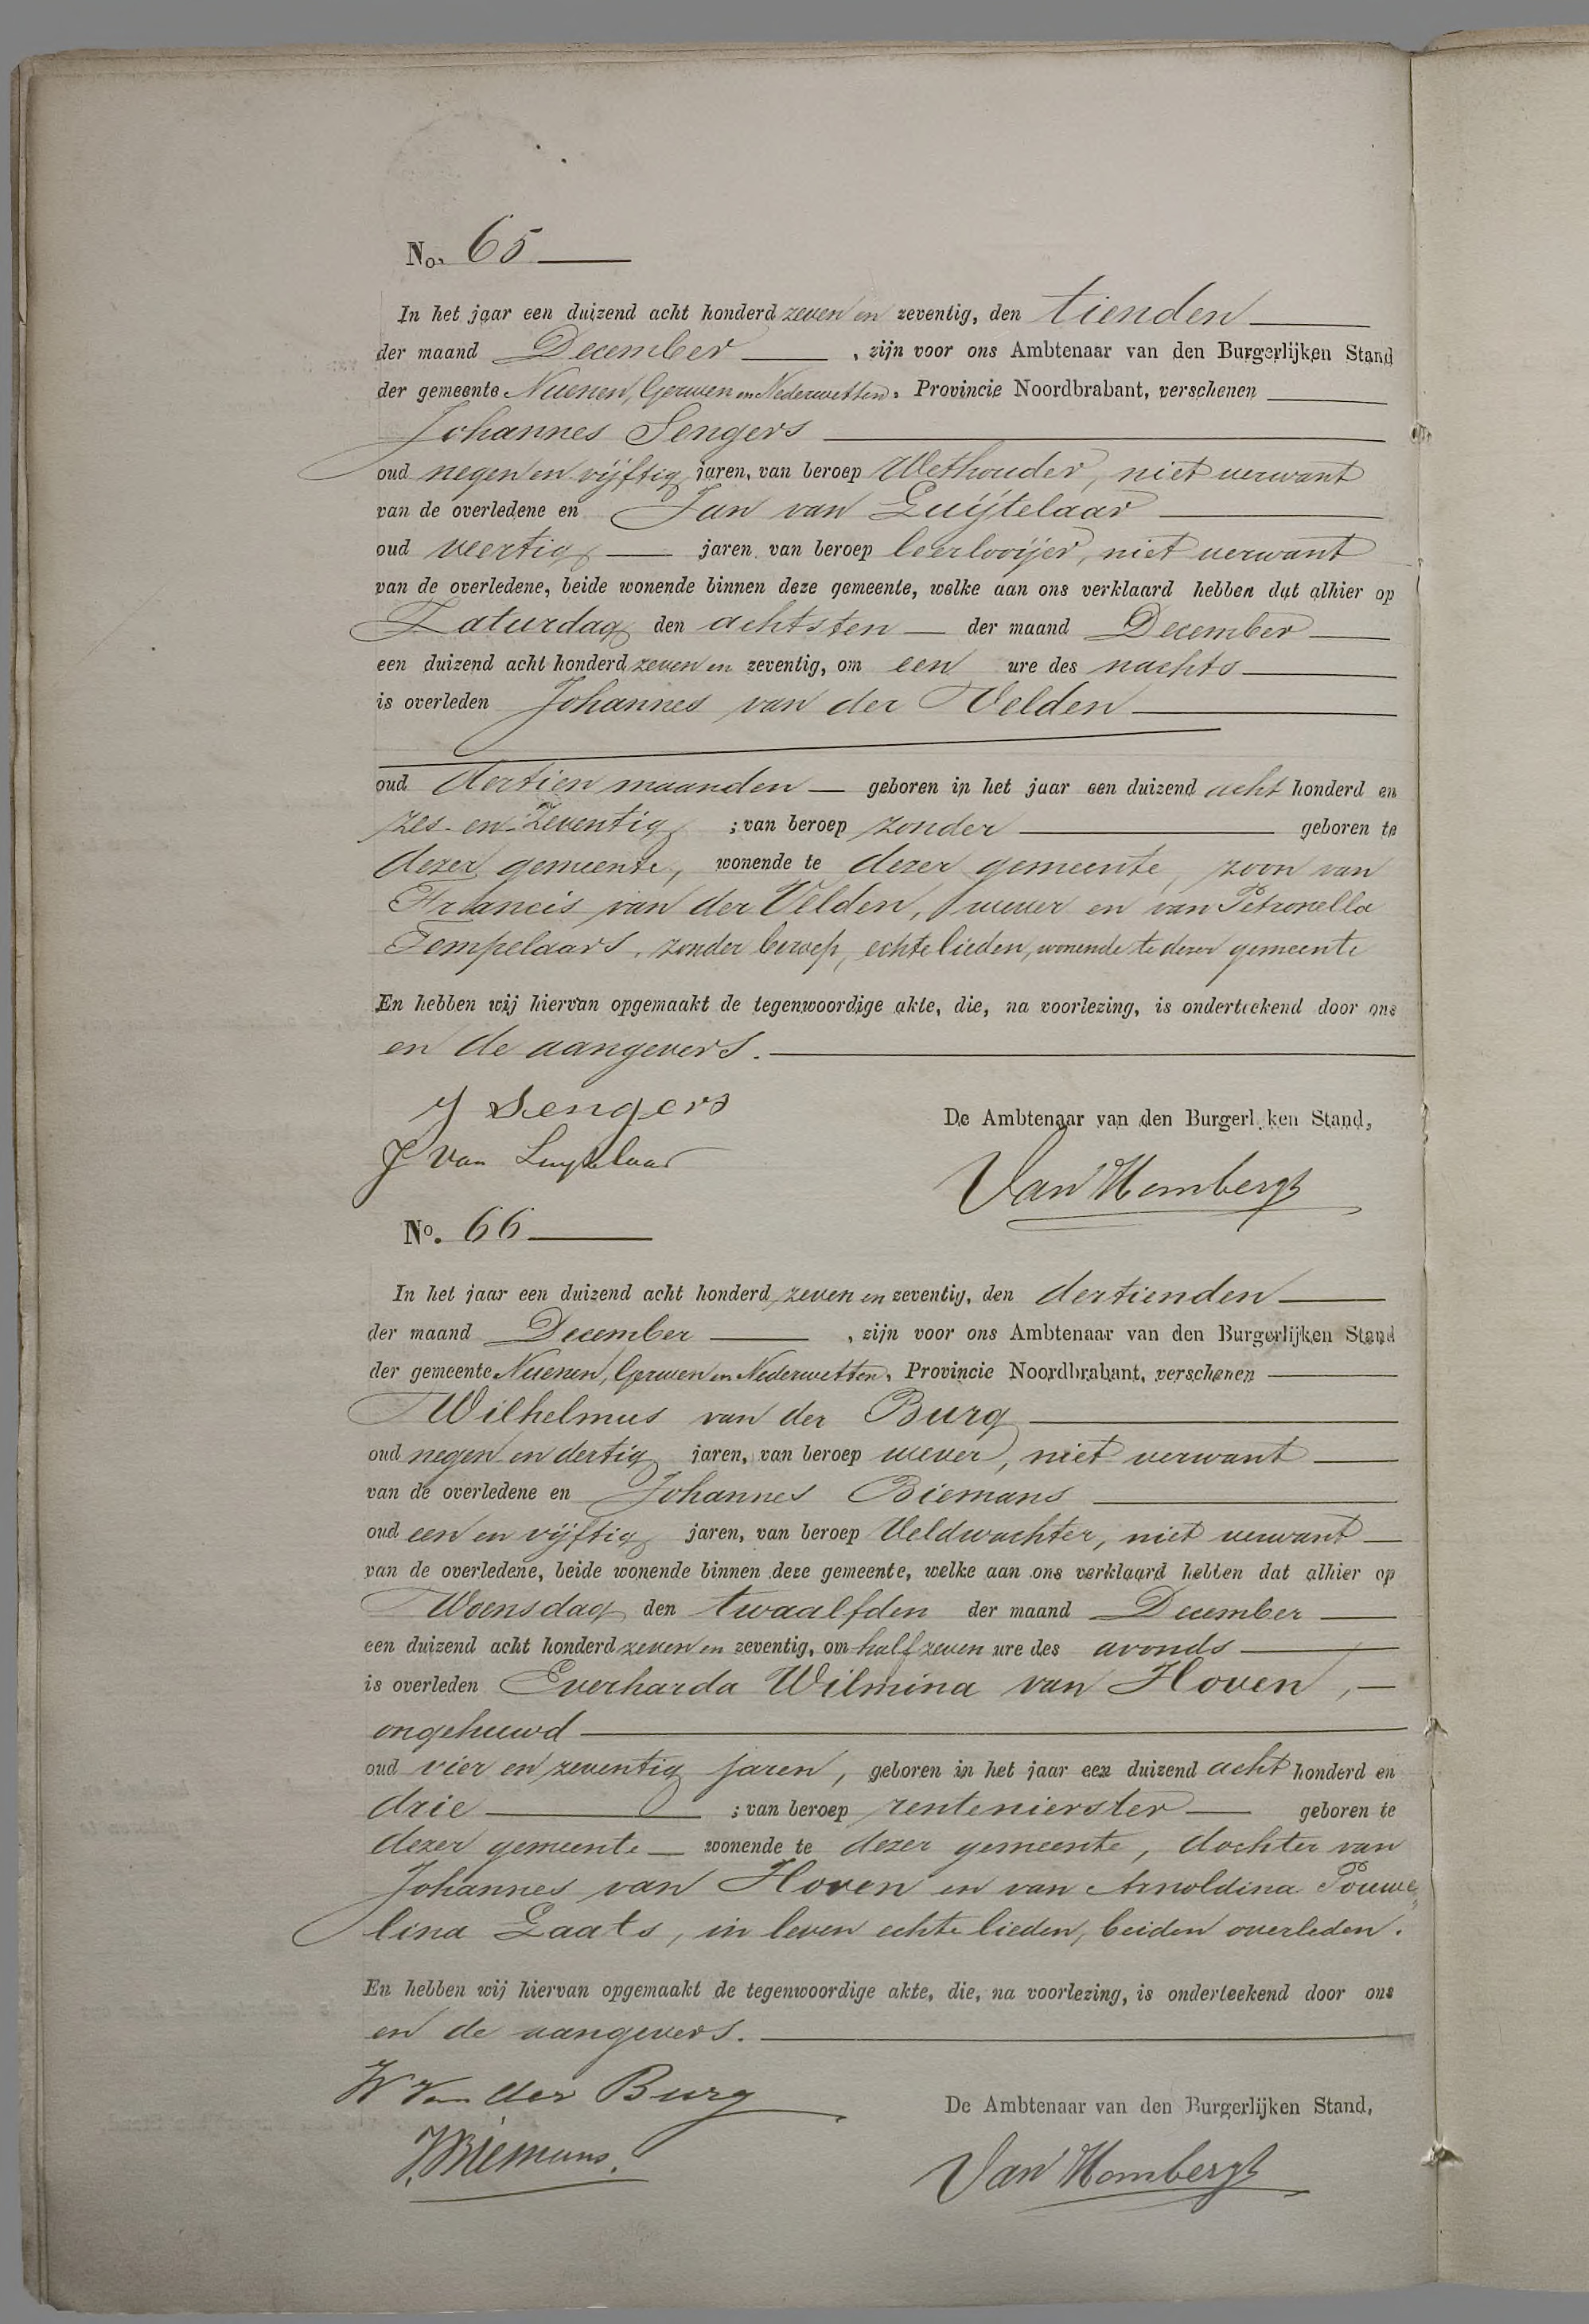 No. 65
In het jaar een duizend acht honderd zeven en zeventig, den tienden
der maand December, zijn voor ons Ambtenaar van den Burgerlijken Stand
der gemeente Nuenen, Gerwen en Nederwetten. Provincie Noordbrabant, verschenen
Johannes Sengers
oud negen en vijftig jaren, van beroep Wethouder, niet verwant
van de overledene en Jan van Luijtelaar
oud veertig jaren van beroep leerlooijer, niet verwant
van de overledene, beide wonende binnen deze gemeente, welke aan ons verklaard hebben dat alhier op
Zaturdag den achtsten der maand December
een duizend acht honderd zeven en zeventig, om een ure des nachts
is overleden Johannes van der Velden
oud dertien maanden geboren in het jaar een duizend acht honderd en
zes-en-Zeventig ; van beroep zonder geboren te
dezer gemeente, wonende te dezer gemeente, zoon van
Francis van der Velden, wever en van Petronella
Tempelaars, zonder beroep, echtelieden, wonende te dezer gemeente
En hebben wij hiervan opgemaakt de tegenwoordige akte, die, na voorlezing, is onderteekend door ons
en de aangevers.
J Sengers
De Ambtenaar van den Burgerl ken Stand,
J van Luytelaar
Van Hombergh
No. 66
In het jaar een duizend acht honderd zeven en zeventig, den dertienden
der maand December, zijn voor ons Ambtenaar van den Burgerlijken Stand
der gemeente Nuenen, Gerwen en Nederwetten. Provincie Noordbrabant, verschenen
Wilhelmus van der Burg
oud negen en dertig jaren, van beroep wever, niet verwant
van de overledene en Johannes Biemans
oud een en vijftig jaren, van beroep Veldwachter, niet verwant
van de overledene, beide wonende binnen deze gemeente, welke aan ons verklaard hebben dat alhier op
Woensdag den twaalfden der maand December
een duizend acht honderd zeven en zeventig, om half zeven ure des avonds
is overleden Everharda Wilmina van Hoven,
ongehuwd
oud vier en zeventig jaren, geboren in het jaar een duizend acht honderd en
drie ; van beroep rentenierster geboren te
dezer gemeente wonende te dezer gemeente, dochter van
Johannes van Hoven en van Arnoldina Pouwe-
lina Laats, in leven echtelieden, beiden overleden.
En hebben wij hiervan opgemaakt de tegenwoordige akte, die, na voorlezing, is onderteekend door ons
en de aangevers.
W van der Burg
De Ambtenaar van den Burgerlijken Stand,
J. Biemans.
Van Hombergh